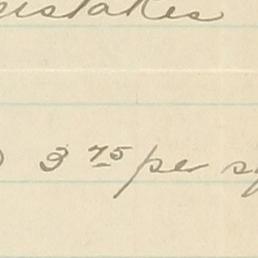 mistakes
3 75 per